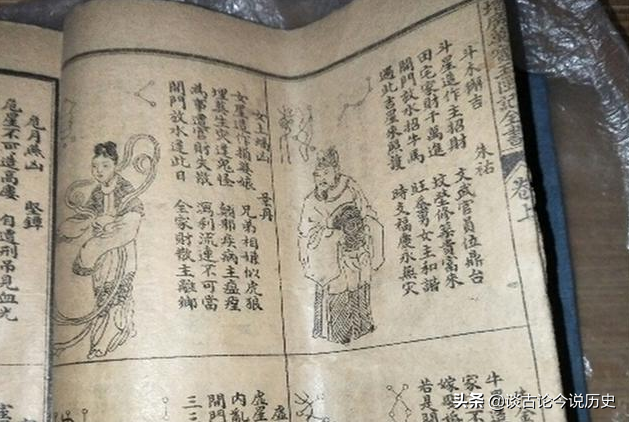 廣萬寶玉匣記全書
卷上
斗木獬吉 朱祐
斗星造作主招財 文武官員位鼎台
田宅家財千萬進 墳塋修築貴富來
開門放水招牛馬 旺蚕男女主和諧
遇此吉星來照護 時支福慶永無灾
女土蝠凶 景丹
女星造作損婆娘 兄弟相嫌似虎狼
埋葬生灾逢鬼怪 顛邪疾病主瘟
為事遭官財失散 瀉利流連不可當
開門放水逢此日 全家財散主離鄉
危月燕凶 堅鐔
危星不可造高樓 自遭刑吊見血光
牛星造
家
嫁娶
若是
虛
虛星
內亂
開門
三
头条 @谈古论今说历史